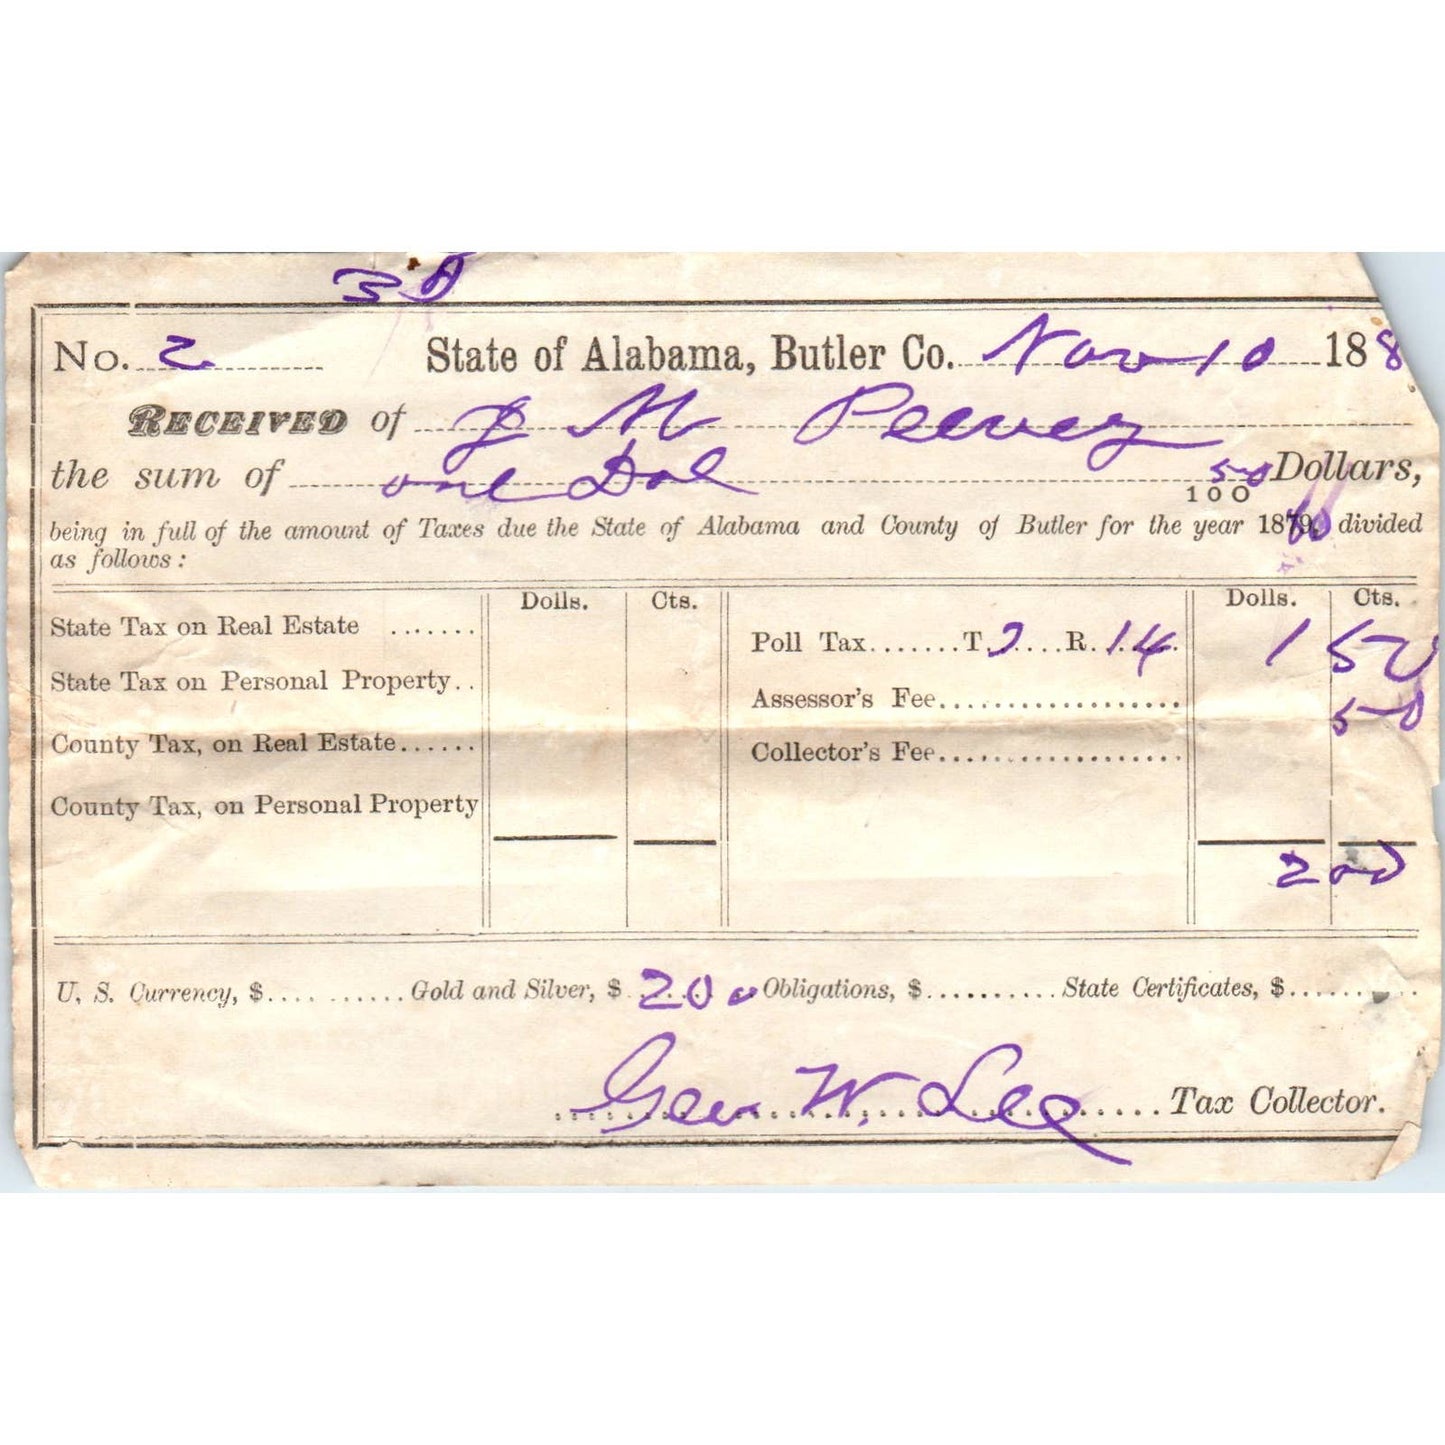 3d
No. 2 State of Alabama, Butler Co. Nov 10 188
RECEIVED of J M Peevey
the sum of one Dol 50/100 Dollars,
being in full of the amount of Taxes due the State of Alabama and County of Butler for the year 1880 divided
as follows:
Dolls. Cts. Dolls. Cts.
State Tax on Real Estate .......
Poll Tax.......T. 7....R. 14. 1 50
State Tax on Personal Property..
Assessor's Fee.................. 50
County Tax, on Real Estate......
Collector's Fee..................
County Tax, on Personal Property
2 00
U. S. Currency, $.... .......Gold and Silver, $ 2.00 Obligations, $...........State Certificates, $..........
Geo. W. Lee Tax Collector.